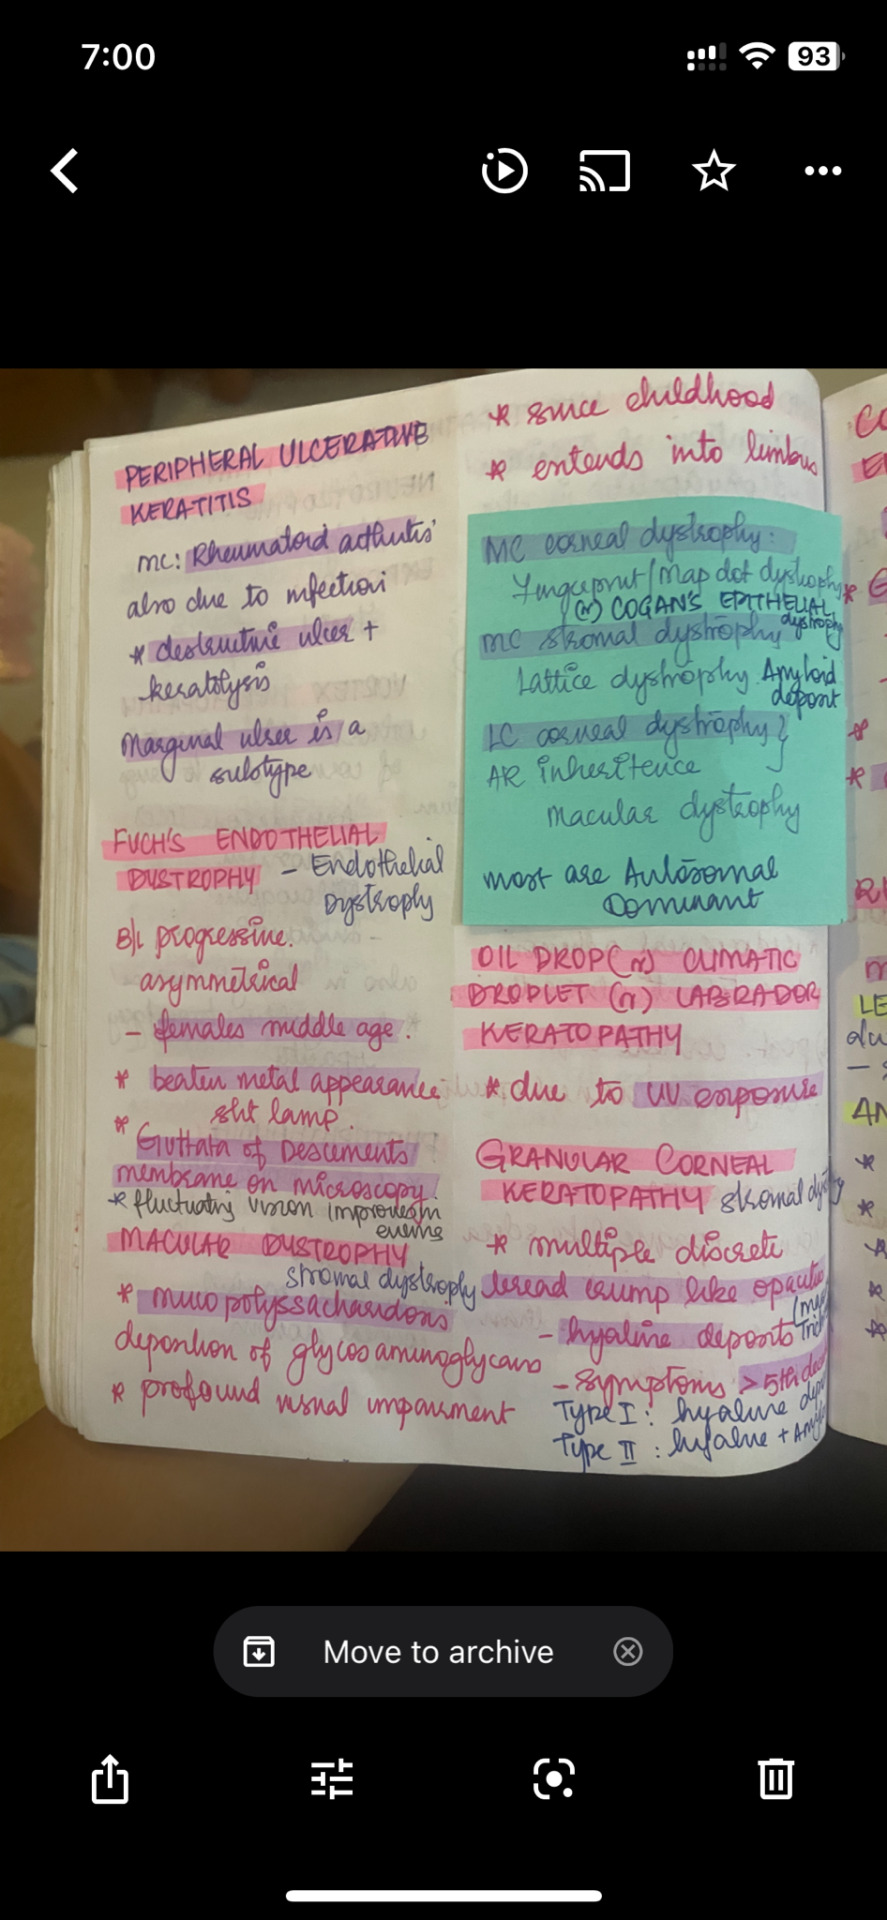 7:00
93
PERIPHERAL ULCERATIVE
KERATITIS
mc: Rheumatoid arthritis
also due to infection
* destructive ulcer +
keratolysis
Marginal ulcer is a
subtype
FUCH'S ENDOTHELIAL
DYSTROPHY - Endothelial
Dystrophy
B/L progressive.
asymmetrical
- females middle age.
* beaten metal appearance
slit lamp.
* Guttata of Descements
membrane on microscopy.
* fluctuating vision improves in
evening
MACULAR DYSTROPHY
stromal dystrophy
* mucopolyssacharidosis
deposition of glycosaminoglycans
* profound visual impairment
* since childhood
* extends into limbus
MC corneal dystrophy:
Fingerprint/Map dot dystrophy
(or) COGAN'S EPITHELIAL
dystrophy
MC stromal dystrophy
Lattice dystrophy Amyloid
deposit
LC corneal dystrophy }
AR inheritence
macular dystrophy
most are Autosomal
Dominant
OIL DROP (or) CLIMATIC
DROPLET (or) LABRADOR
KERATOPATHY
* due to UV exposure
GRANULAR CORNEAL
KERATOPATHY stromal
* multiple discrete
bread crump like
- hyaline deposits
- symptoms > 5th
Type I : hyaline
Type II : hyaline +
LE
AN
Move to archive